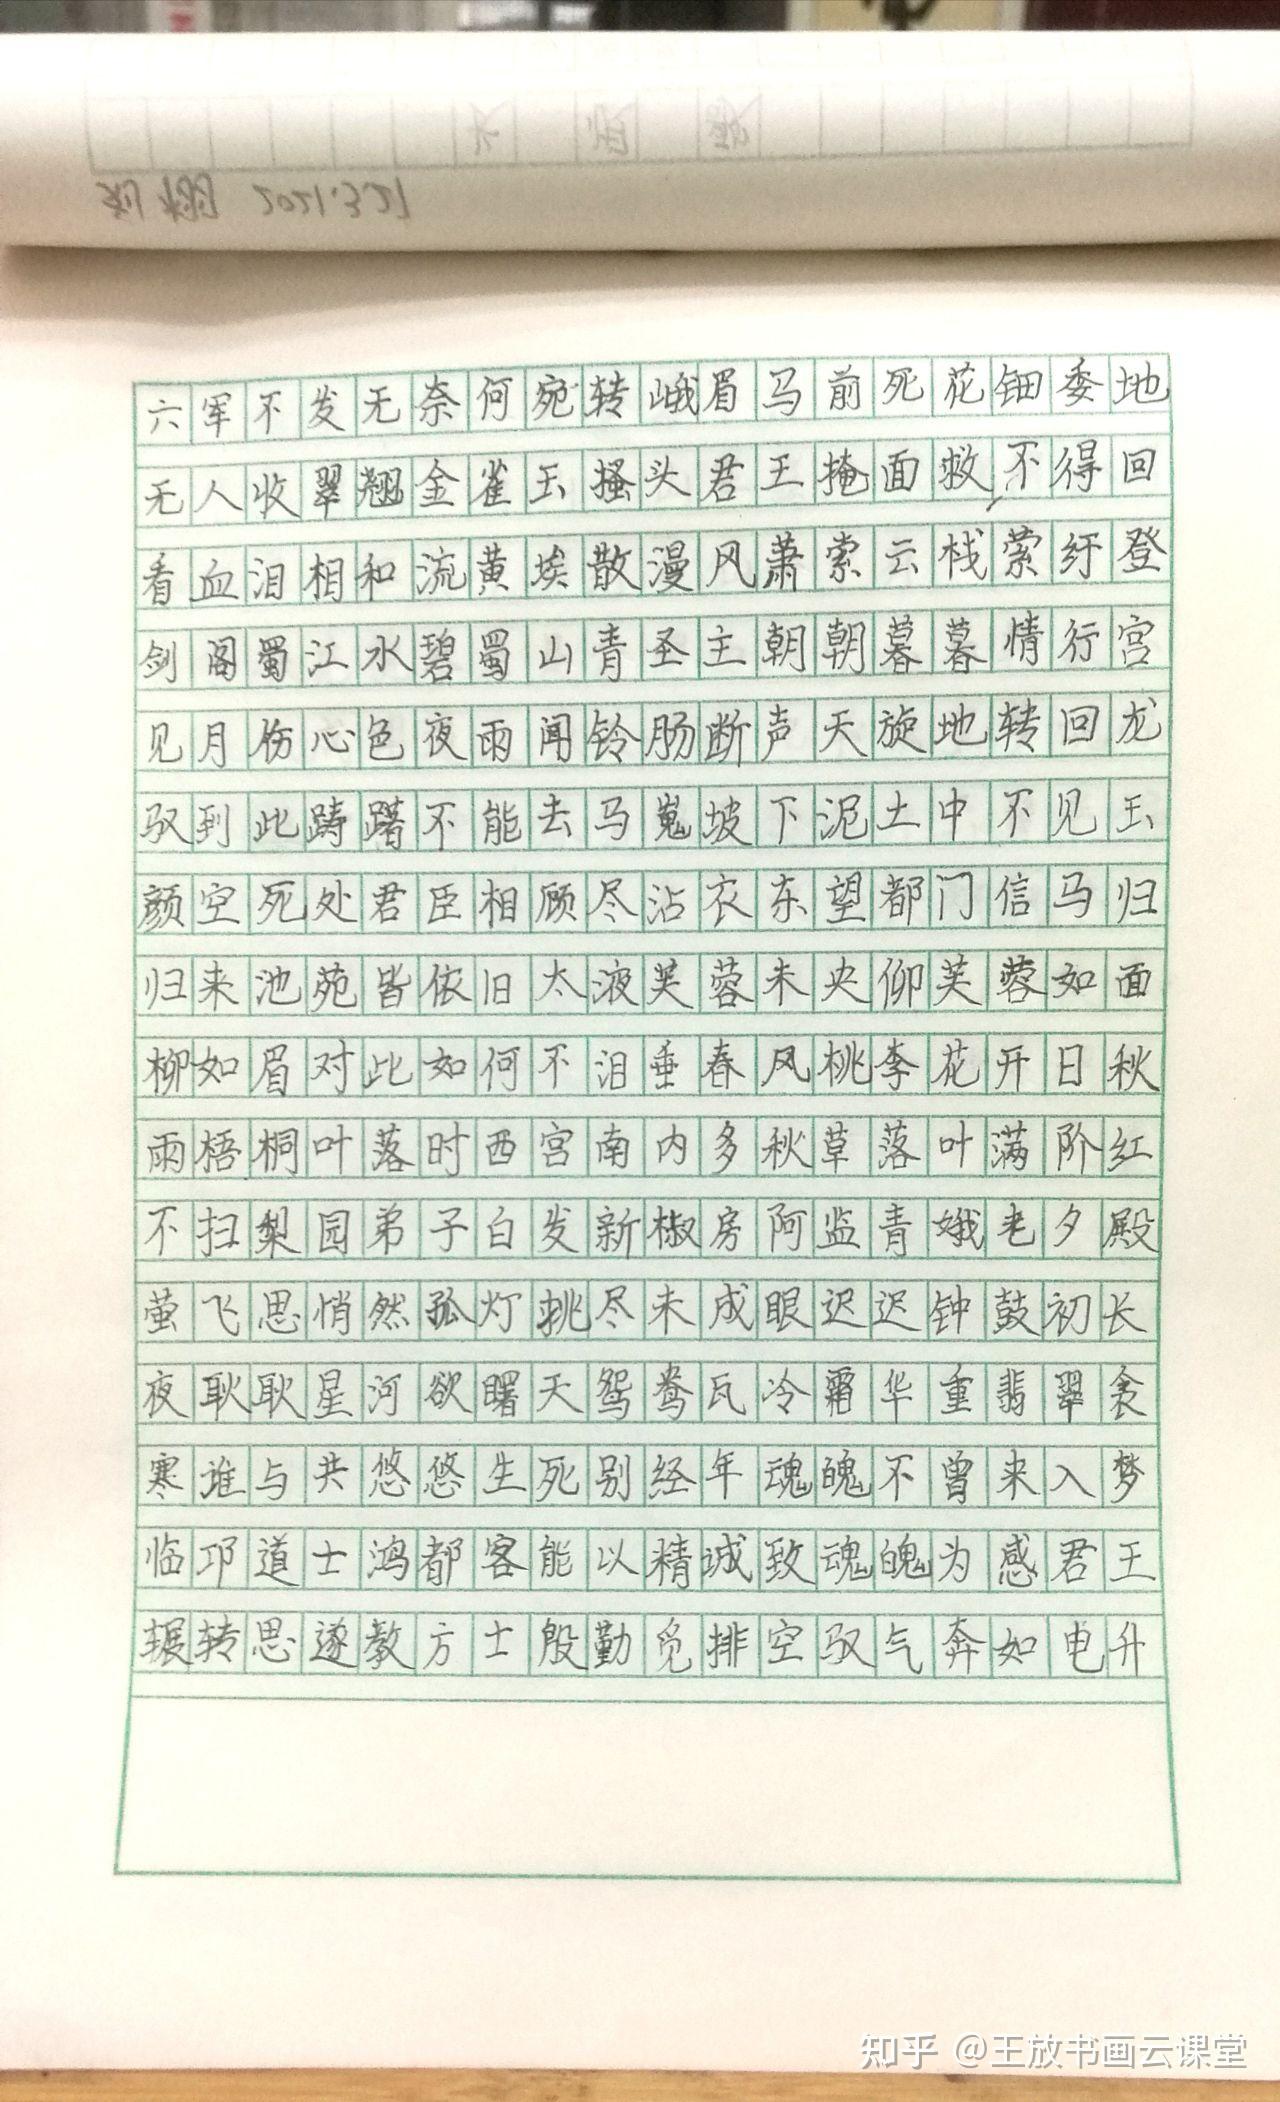 2021.3.21
六军不发无奈何宛转峨眉马前死花钿委地
无人收翠翘金雀玉搔头君王掩面救不得回
看血泪相和流黄埃散漫风萧索云栈萦纡登
剑阁蜀江水碧蜀山青圣主朝朝暮暮情行宫
见月伤心色夜雨闻铃肠断声天旋地转回龙
驭到此踌躇不能去马嵬坡下泥土中不见玉
颜空死处君臣相顾尽沾衣东望都门信马归
归来池苑皆依旧太液芙蓉未央柳芙蓉如面
柳如眉对此如何不泪垂春风桃李花开日秋
雨梧桐叶落时西宫南内多秋草落叶满阶红
不扫梨园弟子白发新椒房阿监青娥老夕殿
萤飞思悄然孤灯挑尽未成眠迟迟钟鼓初长
夜耿耿星河欲曙天鸳鸯瓦冷霜华重翡翠衾
寒谁与共悠悠生死别经年魂魄不曾来入梦
临邛道士鸿都客能以精诚致魂魄为感君王
辗转思遂教方士殷勤觅排空驭气奔如电升
知乎 @王放书画云课堂